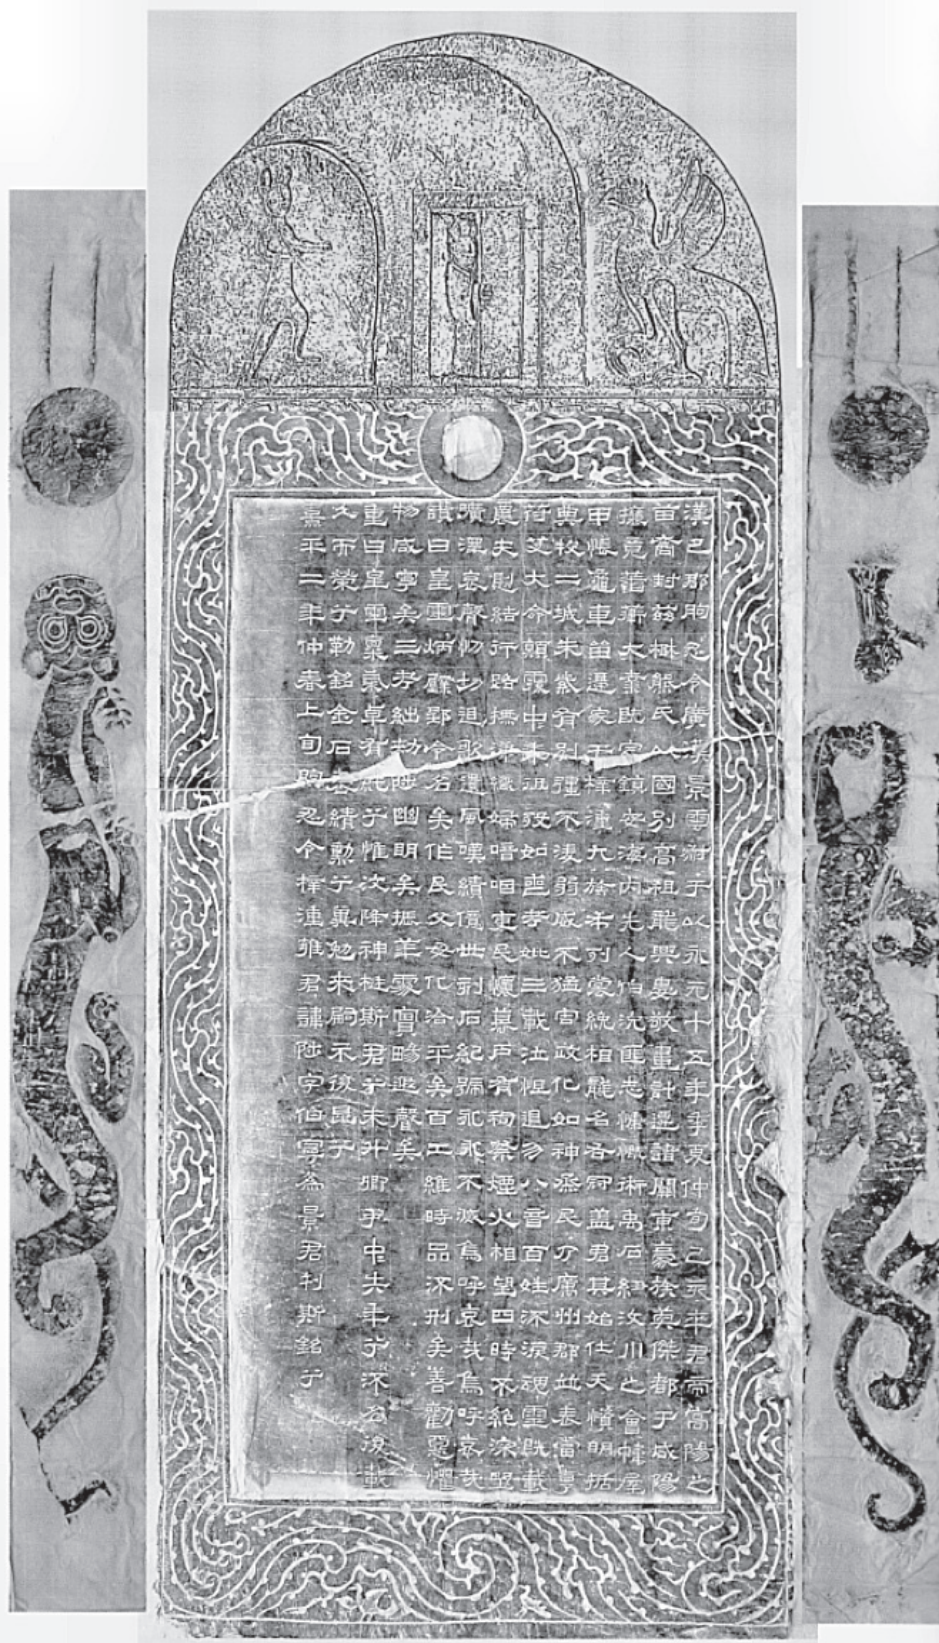 漢巴郡朐忍令廣漢景雲叔于以永元十五年季夏仲旬己亥卒君帝高陽之
苗裔封茲楚熊氏以國別高祖龍興婁敬畫計遷諸關東豪族英傑都于咸陽
攘竟蕃大業既定鎮安海內先人伯沇匪志慷慨術禹石紐汶川之會幃屋
甲帳龜車留遰家于梓潼九族布列裳絻相襲名右冠盖君其始仕天資明括
典牧二城朱紫有別強不凌弱威不猛害政化如神烝民乃厲州郡並表當享
符艾大命顛覆中年徂歿如喪考妣三載泣怛遏勿八音百姓流淚魂靈既載
農夫惻結行路撫涕織婦喑咽吏民懷慕戶有祠祭煙火相望四時不絕深野
曠澤哀聲忉切追歌遺風嘆績億世刻石紀號永永不滅烏呼哀哉烏呼哀哉
讚曰皇靈炳璧郢令名矣作民父母化洽平矣百工維時品流刑矣善勸惡懼
物咸寧矣三考絀勑陟幽明矣振華處實暘遐聲矣
重曰皇靈稟氣卓有純兮惟汶降神梃斯君兮未升卿尹中失年兮流名後載
久而榮兮勒銘金石表績勳兮冀勉來嗣示後昆兮
熹平二年仲春上旬朐忍令梓潼雍君諱陟字伯寧為景君刊斯銘兮